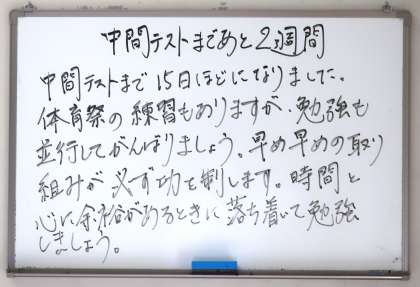 中間テストまであと2週間
中間テストまで15日ほどになりました。
体育祭の練習もありますが、勉強も
並行してがんばりましょう。早め早めの取り
組みが必ず功を制します。時間と
心に余裕があるときに落ち着いて勉強
しましょう。